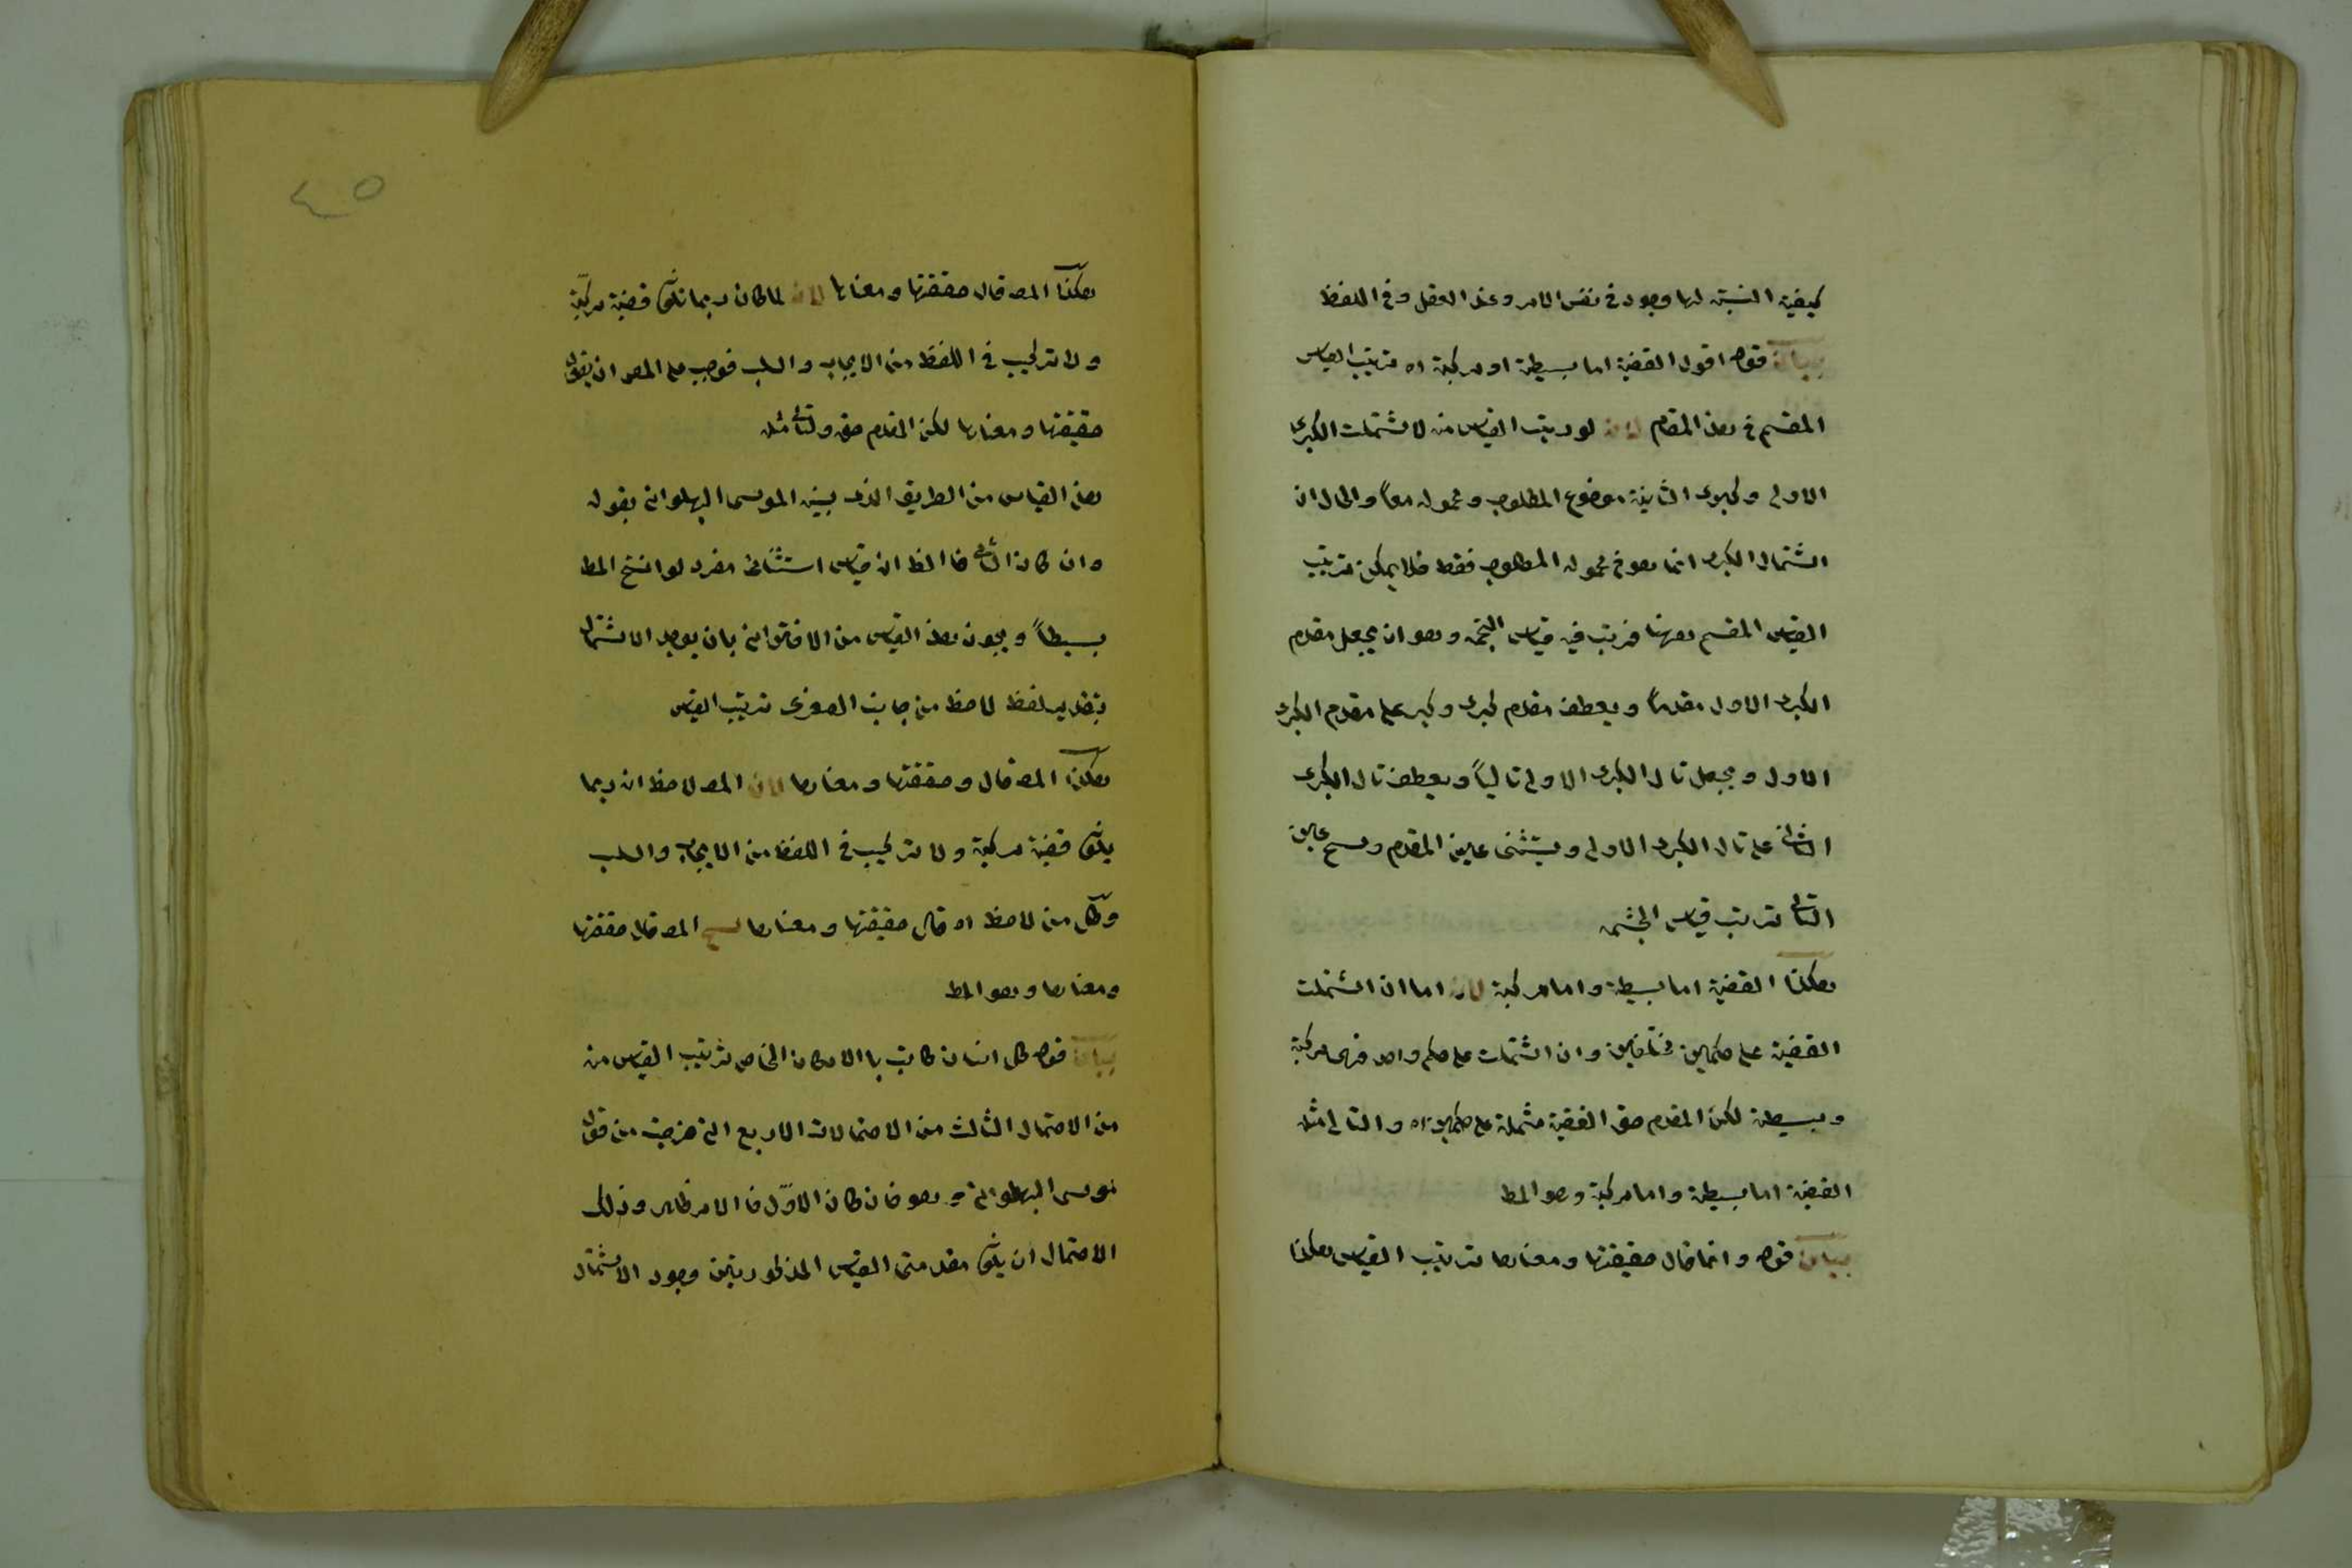 كيفية النسبة لها وجود في نفس الامر وعند العقل وفي اللفظ
بيان قوله اقول القضية اما بسيطة او مركبة اه ترتيب القياس
المقسم في هذا المقام لانه لو رتب القياس منه لاشتملت الكبرى
الاولى وكبرى الثانية موضوع المطلوب ومحموله معاً والحال ان
اشتمال الكبرى انما هو في محمول المطلوب فقط فلا يمكن ترتيب
القياس المقسم ههنا فرتب فيه قياس وهو ان يجعل مقدم
الكبرى الاول مقدماً ويعطف مقدم كبرى على مقدم الكبرى
الاول ويجعل تال الكبرى الاولى تالياً ويعطف تال الكبرى
الثاني على تال الكبرى الاولى ويستثنى عين المقدم عين
التالي ترتيب قياس
هكذا القضية اما بسيطة واما مركبة لانه اما ان اشتملت
القضية على حكمين مختلفين وان اشتملت على حكم واحد فهي مركبة
وبسيطة لكن المقدم حق القضية مشتملة على حكمين اه والتالي مثله
القضية اما بسيطة واما مركبة وهو المط
بيان قوله وانما قال حقيقتها ومعناها ترتيب القياس هكذا
هكذا المص قال حقيقتها ومعناها لانه لما كان ربما تكون قضية مركبة
ولا تركيب في اللفظ من الايجاب والسلب فوجب على المص ان يقول
حقيقتها ومعناها لكن المقدم حق والتالي مثله
هذا القياس من الطريق الذي بينه الموسى البهلواني بقوله
وان كان الثاني فالظ ان قياس استثنائي مفرد لو انتج المط
بسيطاً ويجوز هذا القياس من الاقتراني بان يوجد الاشتمال
بتقدير لفظ لاحظ من جانب الصغرى ترتيب القياس
هكذا المص قال وحقيقتها ومعناها لان المص لاحظ انه ربما
يكون قضية مركبة ولا تركيب في اللفظ من الايجاب والسلب
وكل من لاحظ اه قال حقيقتها ومعناها المص قال حقيقتها
ومعناها وهو المط
بيان قوله كل انسان كاتب بالامكان الخاص ترتيب القياس منه
من الاحتمال الثالث من الاحتمالات الاربع التي خرجت من قول
موسى البهلواني وهو فان كان الاول فالامر ظاهر وذلك
الاحتمال ان يكون مقدمتي القياس المذكورتين وجود الاشتمال
٤٥